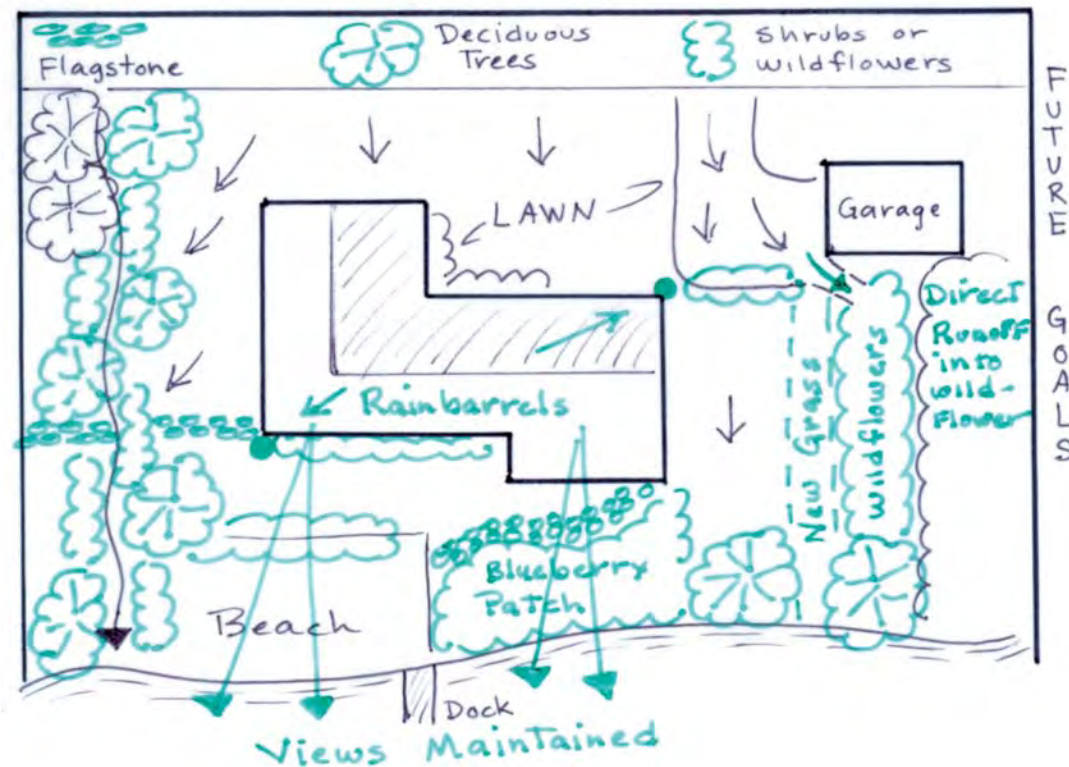 Flagstone
Deciduous
Trees
Shrubs or
wildflowers
FUTURE GOALS
LAWN
Garage
Direct
Runoff
into
wild-
Flower
Rainbarrels
New Grass
wildflowers
Blueberry
Patch
Beach
Dock
Views Maintained